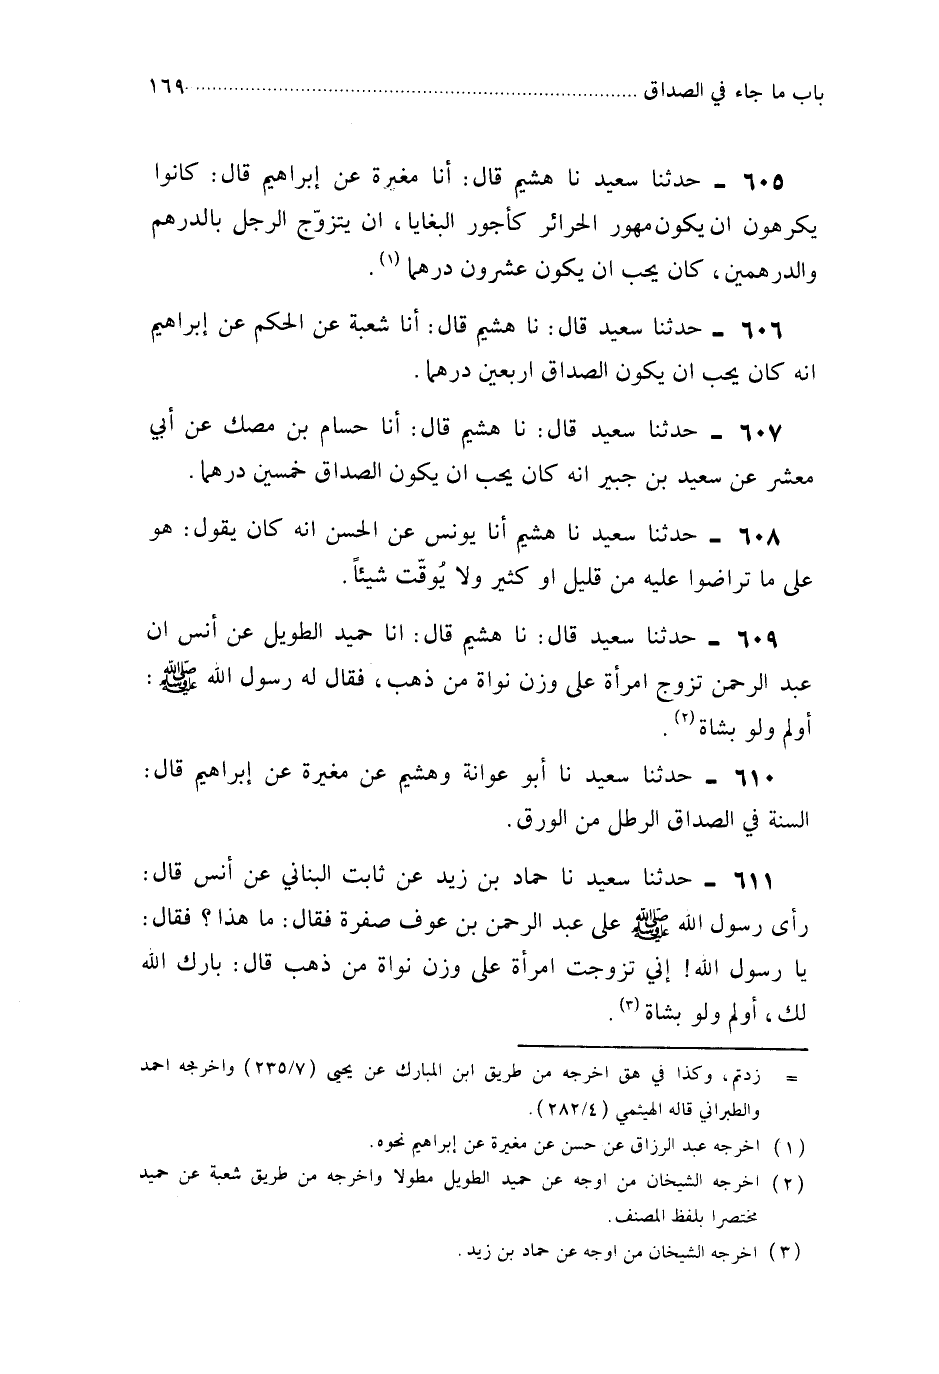 باب ما جاء في الصداق ........................................ ١٦٩
٦٠٥ ـ حدثنا سعيد نا هشيم قال: أنا مغيرة عن إبراهيم قال: كانوا
يكرهون ان يكون مهور الحرائر كأجور البغايا، ان يتزوّج الرجل بالدرهم
والدرهمين، كان يحب ان يكون عشرون درهما (١).
٦٠٦ ـ حدثنا سعيد قال: نا هشيم قال: أنا شعبة عن الحكم عن إبراهيم
انه كان يحب ان يكون الصداق اربعين درهما.
٦٠٧ ـ حدثنا سعيد قال: نا هشيم قال: أنا حسام بن مصك عن أبي
معشر عن سعيد بن جبير انه كان يحب ان يكون الصداق خمسين درهما.
٦٠٨ ـ حدثنا سعيد نا هشيم أنا يونس عن الحسن انه كان يقول: هو
على ما تراضوا عليه من قليل او كثير ولا يُوقّت شيئاً.
٦٠٩ ـ حدثنا سعيد قال: نا هشيم قال: انا حميد الطويل عن أنس ان
عبد الرحمن تزوج امرأة على وزن نواة من ذهب، فقال له رسول الله ﷺ:
أولم ولو بشاة (٢).
٦١٠ ـ حدثنا سعيد نا أبو عوانة وهشيم عن مغيرة عن إبراهيم قال:
السنة في الصداق الرطل من الورق.
٦١١ ـ حدثنا سعيد نا حماد بن زيد عن ثابت البناني عن أنس قال:
رأى رسول الله ﷺ على عبد الرحمن بن عوف صفرة فقال: ما هذا؟ فقال:
يا رسول الله! إني تزوجت امرأة على وزن نواة من ذهب قال: بارك الله
لك، أولم ولو بشاة (٣).
= زدتم، وكذا في هق اخرجه من طريق ابن المبارك عن يحيى (٢٣٥/٧) واخرجه احمد
والطبراني قاله الهيثمي (٢٨٢/٤).
(١) اخرجه عبد الرزاق عن حسن عن مغيرة عن إبراهيم نحوه.
(٢) اخرجه الشيخان من اوجه عن حميد الطويل مطولا واخرجه من طريق شعبة عن حميد
مختصرا بلفظ المصنف.
(٣) اخرجه الشيخان من اوجه عن حماد بن زيد.